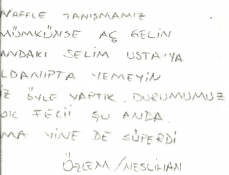 NAFFLE TANIŞMAMIZ
MÜMKÜNSE AÇ GELİN
ANDAKİ SELİM USTA'YA
LDANIPTA YEMEYİN
İZ ÖYLE YAPTIK. DURUMUMUZ
OK FECİİ ŞU ANDA.
MA YİNE DE SÜPERDİ
ÖZLEM/NESLİHAN